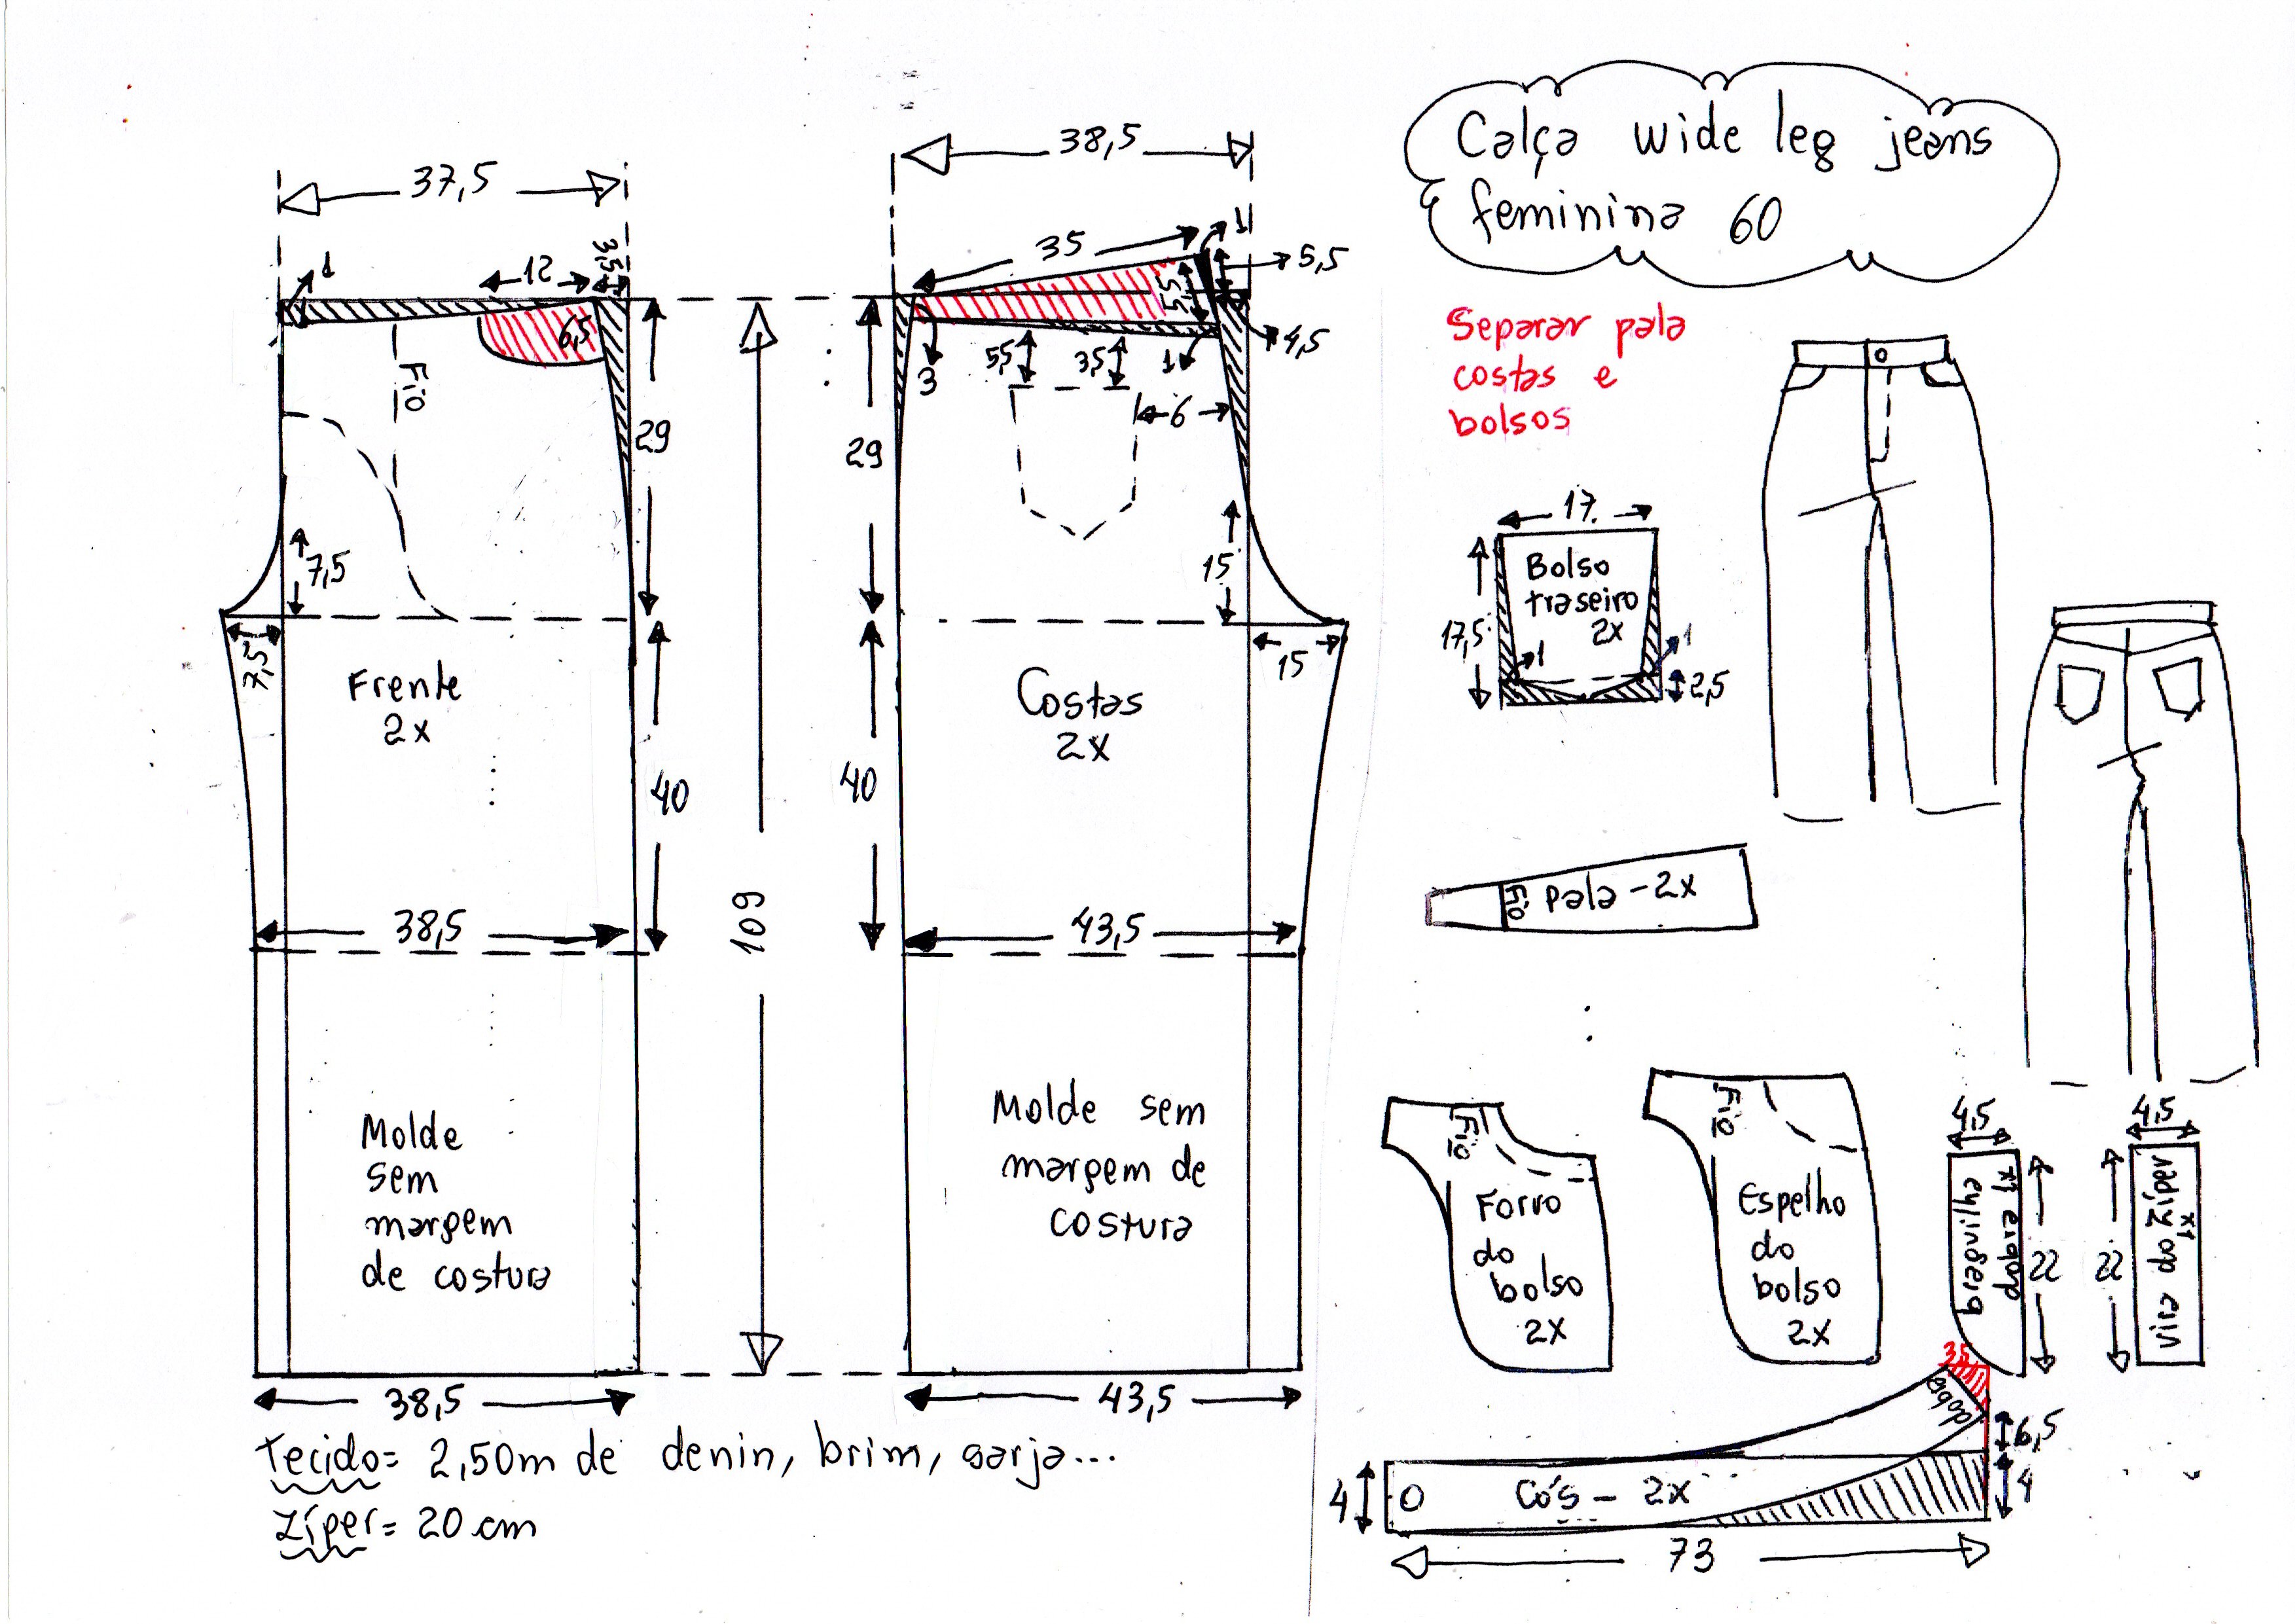 Calça wide leg jeans
feminina 60
Separar pala
costas e
bolsos
37,5
1
12
3,5
6,5
Fio
29
7,5
7,5
Frente
2x
40
38,5
Molde
sem
margem
de costura
38,5
109
38,5
35
1
5,5
5,5
4,5
3
5,5
3,5
1
6
29
15
15
Costas
2x
40
43,5
Molde sem
margem de
costura
43,5
17
Bolso
traseiro
2x
17,5
1
1
2,5
Fio
Pala - 2x
Fio
Forro
do
bolso
2x
Fio
Espelho
do
bolso
2x
4,5
braguilha
dobra 1x
22
4,5
22
vira do zíper
x1
3,5
dobra
6,5
4
4
Cós - 2x
73
Tecido= 2,50m de denin, brim, sarja...
Zíper= 20 cm